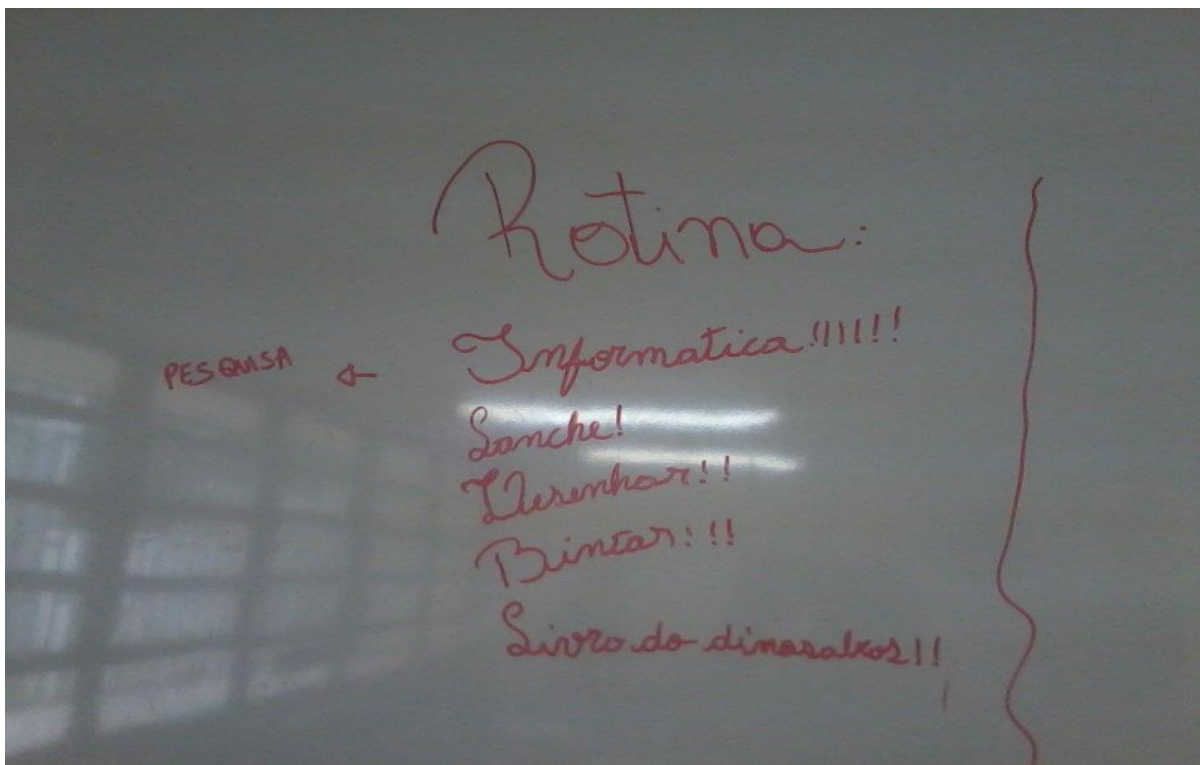 Rotina:
PESQUISA ← Informatica!!!!!!
Lanche!
Desenhar!!
Livro do dinasalros!!